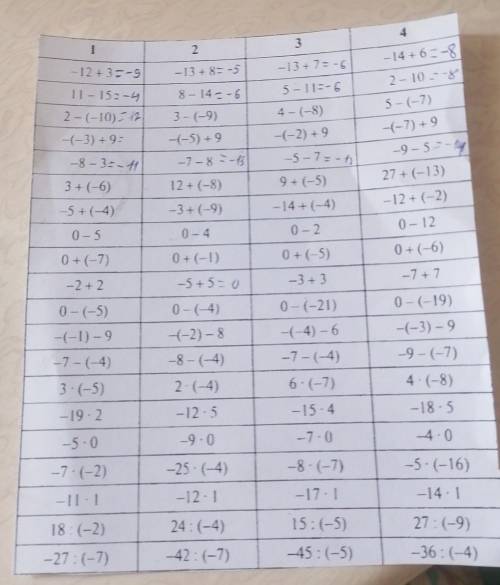 1 2 3 4
−12 + 3 = −9 −13 + 8 = −5 −13 + 7 = −6 −14 + 6 = −8
11 − 15 = −4 8 − 14 = −6 5 − 11 = −6 2 − 10 = −8
2 − (−10) = 12 3 − (−9) 4 − (−8) 5 − (−7)
−(−3) + 9 = −(−5) + 9 −(−2) + 9 −(−7) + 9
−8 − 3 = −11 −7 − 8 = −15 −5 − 7 = −9 − 5 =
3 + (−6) 12 + (−8) 9 + (−5) 27 + (−13)
−5 + (−4) −3 + (−9) −14 + (−4) −12 + (−2)
0 − 5 0 − 4 0 − 2 0 − 12
0 + (−7) 0 + (−1) 0 + (−5) 0 + (−6)
−2 + 2 −5 + 5 = 0 −3 + 3 −7 + 7
0 − (−5) 0 − (−4) 0 − (−21) 0 − (−19)
−(−1) − 9 −(−2) − 8 −(−4) − 6 −(−3) − 9
−7 − (−4) −8 − (−4) −7 − (−4) −9 − (−7)
3 · (−5) 2 · (−4) 6 · (−7) 4 · (−8)
−19 · 2 −12 · 5 −15 · 4 −18 · 5
−5 · 0 −9 · 0 −7 · 0 −4 · 0
−7 · (−2) −25 · (−4) −8 · (−7) −5 · (−16)
−11 · 1 −12 · 1 −17 · 1 −14 · 1
18 : (−2) 24 : (−4) 15 : (−5) 27 : (−9)
−27 : (−7) −42 : (−7) −45 : (−5) −36 : (−4)